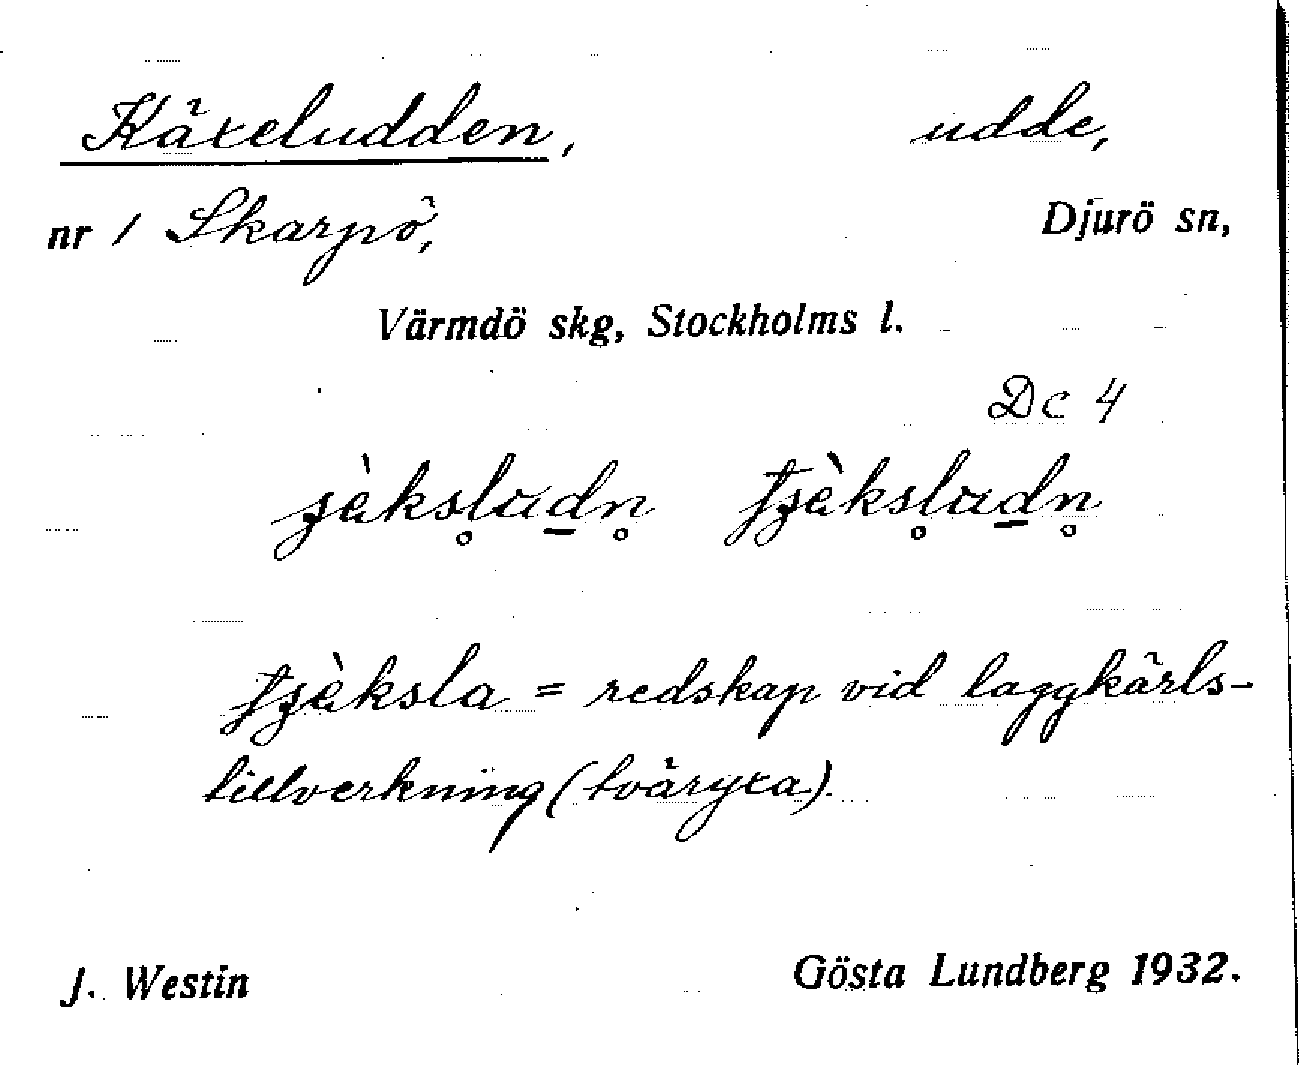 Käxeludden, udde,
nr 1 Skarpö, Djurö sn,
Värmdö skg, Stockholms l.
Dc 4
ʒèksl̥ud̲n̥ tʒèksl̥ud̲n̥
tʒèksla = redskap vid laggkärls-
tillverkning (tväryxa).
J. Westin Gösta Lundberg 1932.